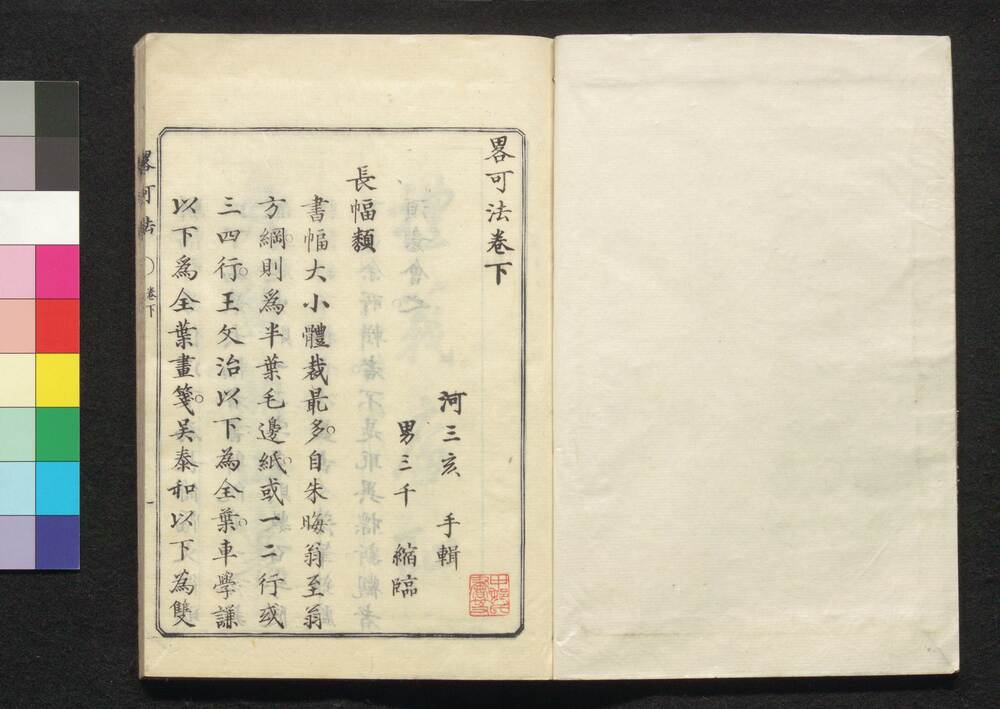 畧可法卷下
河三亥 手輯
男三千 縮臨
長幅類
書幅大小體裁最多。自朱晦翁至翁
方綱則爲半葉毛邊紙。或一二行或
三四行。王文治以下為全葉。車學謙
以下爲全葉畫箋。吴泰和以下為雙
畧可法 卷下 一